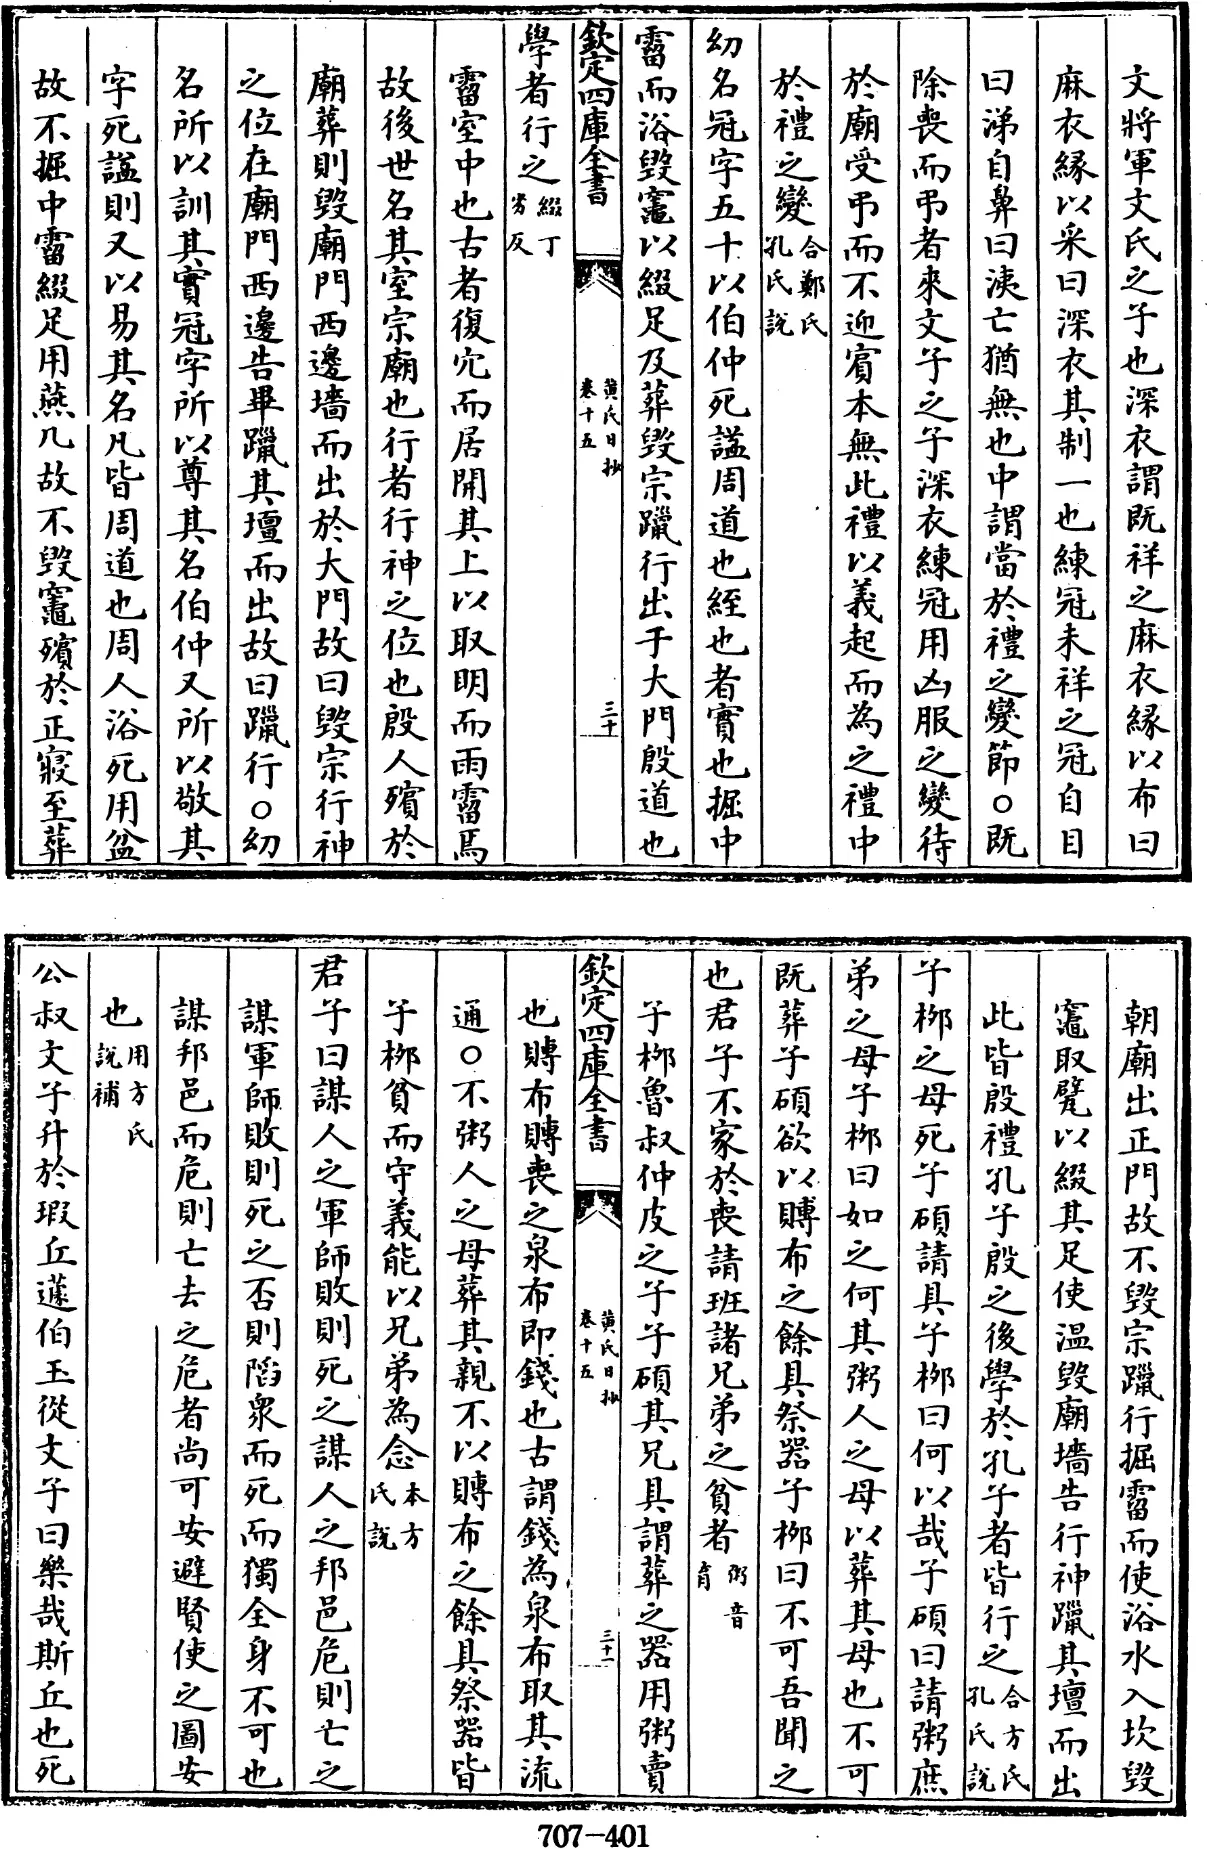 文將軍文氏之子也深衣謂既祥之麻衣縁以布曰
麻衣縁以采曰深衣其制一也練冠未祥之冠自目
曰涕自鼻曰洟亡猶無也中謂當於禮之變節○既
除喪而弔者來文子之子深衣練冠用凶服之變待
於廟受弔而不迎賓本無此禮以義起而為之禮中
於禮之變合鄭氏孔氏說
幼名冠字五十以伯仲死諡周道也絰也者實也掘中
霤而浴毀竈以綴足及葬毀宗躐行出于大門殷道也
欽定四庫全書
黃氏日抄
卷十五
三十
學者行之綴丁劣反
霤室中也古者復穴而居開其上以取明而雨霤焉
故後世名其室宗廟也行者行神之位也殷人殯於
廟葬則毀廟門西邊墻而出於大門故曰毀宗行神
之位在廟門西邊告畢躐其壇而出故曰躐行○幼
名所以訓其實冠字所以尊其名伯仲又所以敬其
字死諡則又以易其名凡皆周道也周人浴死用盆
故不掘中霤綴足用燕几故不毀竈殯於正寢至葬
朝廟出正門故不毀宗躐行掘霤而使浴水入坎毀
竈取甓以綴其足使温毀廟墻告行神躐其壇而出
此皆殷禮孔子殷之後學於孔子者皆行之合方氏孔氏說
子柳之母死子碩請具子柳曰何以哉子碩曰請粥庶
弟之母子柳曰如之何其粥人之母以葬其母也不可
既葬子碩欲以賻布之餘具祭器子柳曰不可吾聞之
也君子不家於喪請班諸兄弟之貧者粥音育
子柳魯叔仲皮之子子碩其兄具謂葬之器用粥賣
欽定四庫全書
黃氏日抄
卷十五
三十一
也賻布賻喪之泉布即錢也古謂錢為泉布取其流
通○不粥人之母葬其親不以賻布之餘具祭器皆
子柳貧而守義能以兄弟為念本方氏說
君子曰謀人之軍師敗則死之謀人之邦邑危則亡之
謀軍師敗則死之否則陷衆而死而獨全身不可也
謀邦邑而危則亡去之危者尚可安避賢使之圖安
也用方氏說補
公叔文子升於瑕丘蘧伯玉從文子曰樂哉斯丘也死
707-401